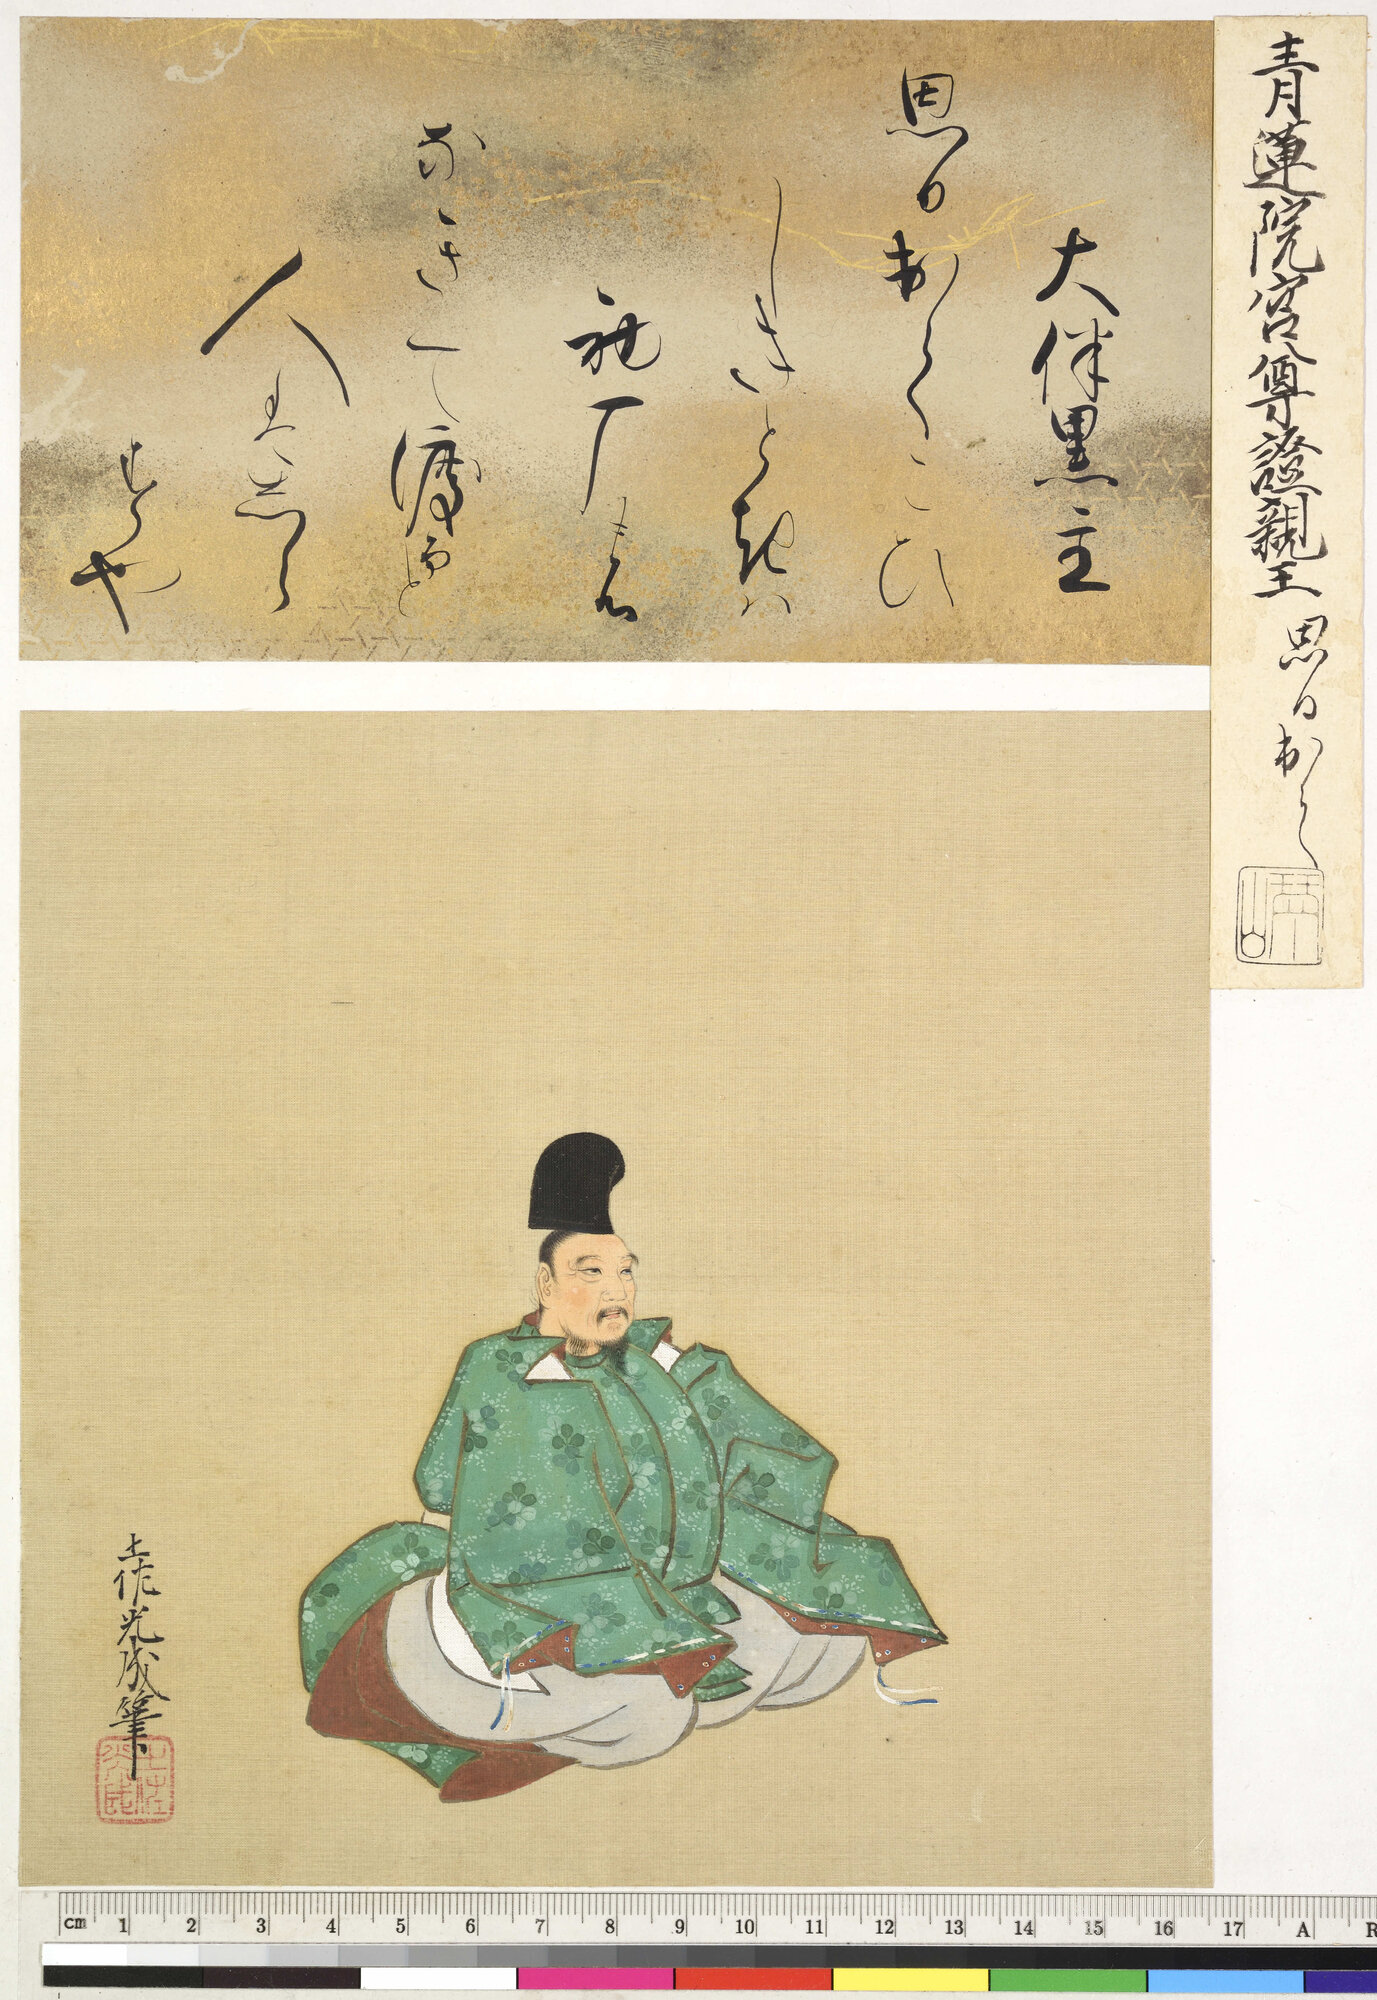 青蓮院宮尊證親王 思日出てゝ
琴山
大伴黒主
思日出てゝこひ
しきときハ
初厂の
なきて渡ると
人はしら
すや
土佐光成筆
cm 1 2 3 4 5 6 7 8 9 10 11 12 13 14 15 16 17 A R